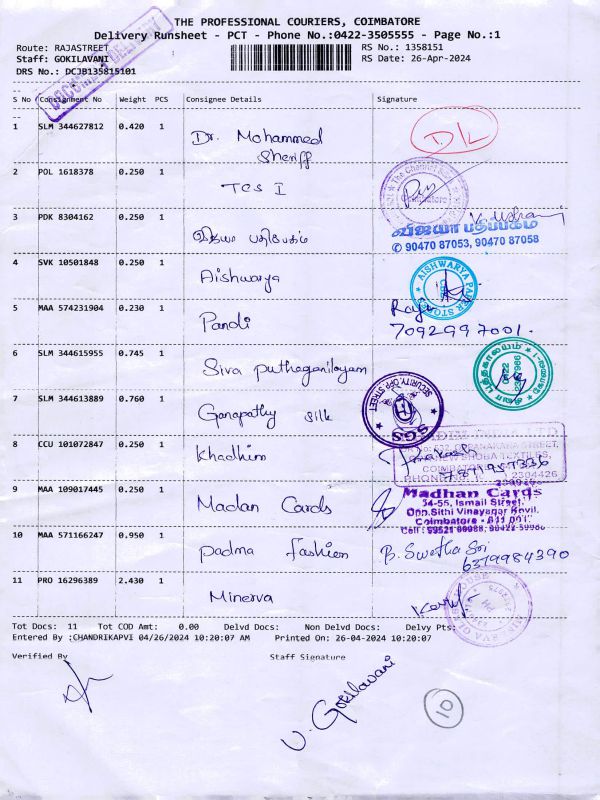 THE PROFESSIONAL COURIERS, COIMBATORE
Delivery Runsheet - PCT - Phone No.:0422-3505555 - Page No.:1
Route: RAJASTREET
RS No.: 1358151
Staff: GOKILAVANI
RS Date: 26-Apr-2024
DRS No.: DCJB135815101
DOCUMENT DELIVERY
S No Consignment No Weight PCS Consignee Details Signature
1 SLM 344627812 0.420 1 Dr. Mohammed Sheriff D/L
2 POL 1618378 0.250 1 TCS I
3 PDK 8304162 0.250 1 விஜயா பதிப்பகம்
விஜயா பதிப்பகம்
✆ 90470 87053, 90470 87058
4 SVK 10501848 0.250 1 Aishwarya
AISHWARYA PAPER STORE
5 MAA 574231904 0.230 1 Pandi
7092997001.
6 SLM 344615955 0.745 1 Siva Puthaganilayam
7 SLM 344613889 0.760 1 Ganapathy Silk
SECURITY OPP STREET
S.G.S
8 CCU 101072847 0.250 1 Khadhim
9 MAA 109017445 0.250 1 Madan Cards
Madhan Cards
54-55, Ismail Street,
Opp.Sithi Vinayagar Kovil,
Coimbatore - 641 001.
10 MAA 571166247 0.950 1 Padma fashion B. Swetha Sri
6379984390
11 PRO 16296389 2.430 1 Minerva
Tot Docs: 11 Tot COD Amt: 0.00 Delvd Docs: Non Delvd Docs: Delvy Pts:
Entered By :CHANDRIKAPVI 04/26/2024 10:20:07 AM Printed On: 26-04-2024 10:20:07
Verified By Staff Signature
V. Gokilavani
10